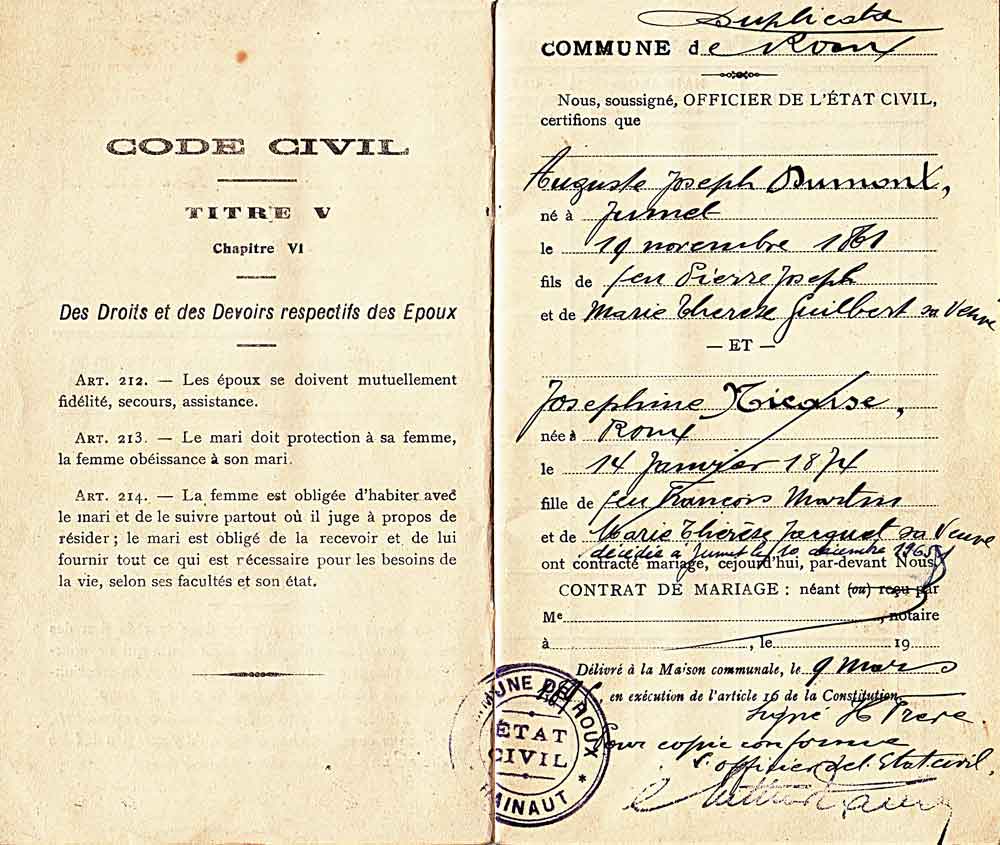 CODE CIVIL
TITRE V
Chapitre VI
Des Droits et des Devoirs respectifs des Epoux
ART. 212. — Les époux se doivent mutuellement
fidélité, secours, assistance.
ART. 213. — Le mari doit protection à sa femme,
la femme obéissance à son mari.
ART. 214. — La femme est obligée d'habiter avec
le mari et de le suivre partout où il juge à propos de
résider ; le mari est obligé de la recevoir et de lui
fournir tout ce qui est récessaire pour les besoins de
la vie, selon ses facultés et son état.
Duplicata
COMMUNE de Roux
Nous, soussigné, OFFICIER DE L'ÉTAT CIVIL,
certifions que
Auguste Joseph Dumont,
né à Jumet
le 19 novembre 1861
fils de feu Pierre Joseph
et de Marie Thérèse Guilbert sa Veuve
— ET —
Josephine Nicaise,
née à Roux
le 14 Janvier 1874
fille de feu François Martin
et de Marie Thérèse Jarquet sa Veuve
décédée à Jumet le 10 décembre 1965
ont contracté mariage, cejourd'hui, par-devant Nous.
CONTRAT DE MARIAGE : néant (ou) reçu par
Me , notaire
à , le 19
Délivré à la Maison communale, le 9 Mars
, en exécution de l'article 16 de la Constitution.
signé H Frere
Pour copie conforme
l'officier de l'Etat civil,
COMMUNE DE ROUX
ÉTAT
CIVIL
HAINAUT